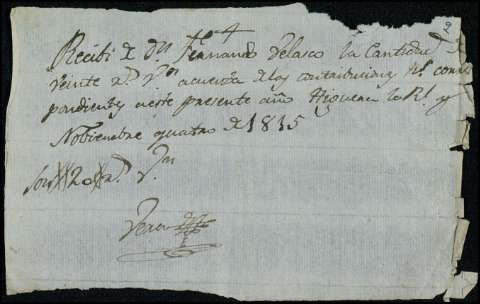 Recibi de Dn Fernando Velasco la Cantidad
veinte rs. vn acuenta de las contribuciones Rs. corres
pondientes a este presente año Higuera la Rl. y
Nobiembre quatro de 1815
Son 20 rs. Vn